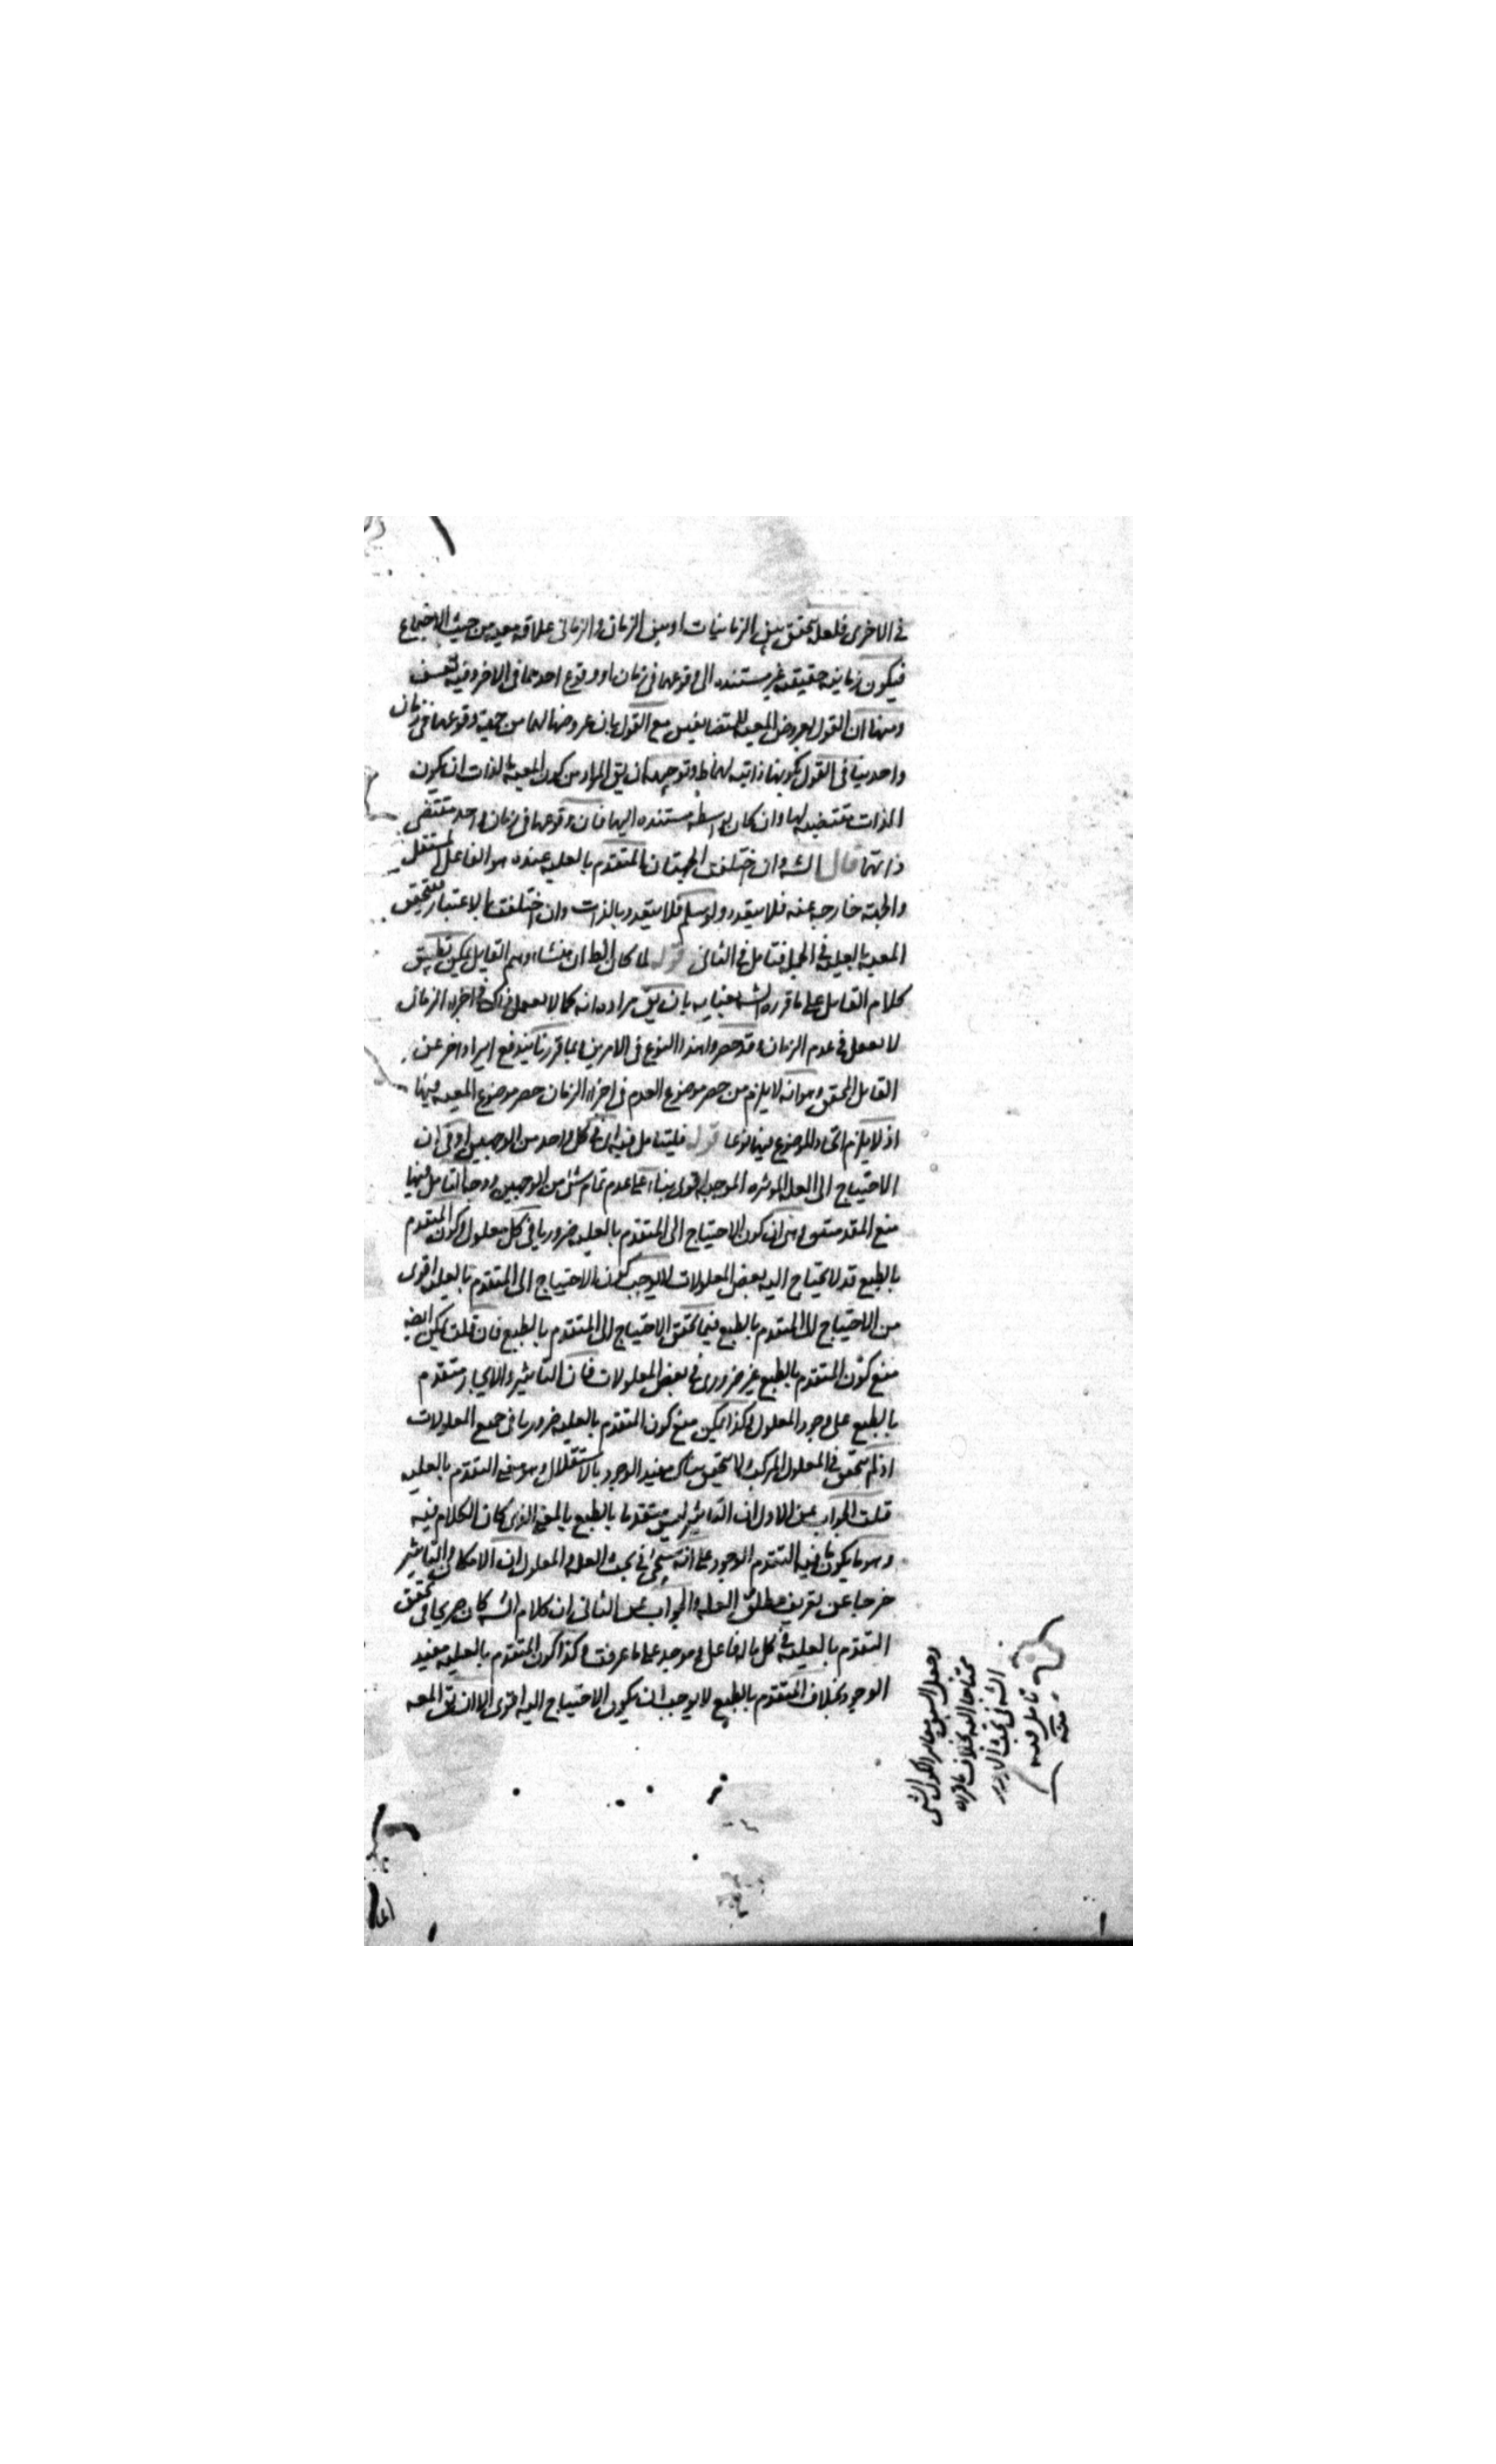 في الاخرى فلعله يتحقق بين الزمانيات او بين الزمان والزماني علاقة معية من حيث الاجتماع
فيكون زمانية حقيقة غير مستنده الى وقوعهما في زمان او وقوع احدهما في الاخر وفيه تعسف
ومنها ان القول بعروض المعية للمتضايفين مع القول بان عروضها لهما من جهة وقوعهما في زمان
واحد ينافي القول بكونها ذاتيه لهما وتوجيهه ان يق المراد من كون المعية بالذات ان يكون
الذات مقتضيه لها وان كان بواسطه مستنده اليها فان وقوعهما في زمان واحد مقتضى
ذاتهما قال الشه وان اختلفت الجهتان المتقدم بالعليه عنده هو الفاعل المستقل
والجهة خارجه عنه فلا يتعدد ولو سلم فلا يتعدد بالذات وان اختلفت بالاعتبار فيتحقق
المعيه بالعليه في الجمله فتامل في الثاني قوله لما كان الظ ان منشاء وهم القايل يمكن تطبيق
كلام القايل على ما قرره الشه بعنايه بان يق مراده انه كما لا يعمل في اجزاء الزمان
لا يعمل في عدم الزمان وقد حصروا هذا النوع في الامرين وبما قررنا يندفع ايراد اخر عن
القايل المحقق وهو انه لا يلزم من حصر موضوع التقدم في اجزاء الزمان حصر موضوع المعيه فيها
اذ لا يلزم اتحاد الموضوع فيهما نوعا قوله فليتامل فيه اي في كل واحد من الوجهين او في ان
الاحتياج الى العله الموثره الموجبه اقوى بناء على عدم تمام شئ من الوجهين ووجه التامل فيهما
منع المقدمتين فان كون الاحتياج الى المتقدم بالعليه ضروريا في كل معلول وكون المتقدم
بالطبع قد لا يحتاج اليه بعض المعلولات لا يوجب كون الاحتياج الى المتقدم بالعليه اقوى
من الاحتياج الى المتقدم بالطبع فيما تحقق الاحتياج الى المتقدم بالطبع فان قلت يمكن ايضا
منع كون المتقدم بالطبع غير ضروري في بعض المعلولات فان التاثير والايجاد متقدم
بالطبع على وجود المعلول وكذا يمكن منع كون المتقدم بالعليه ضروريا في جميع المعلولات
اذ لم يتحقق في المعلول المركب ولا يتحقق هناك مفيد الوجود بالاستقلال وهو معنى التقدم بالعليه
قلت الجواب عن الاول ان التاثير ليس متقدما بالطبع بالمعنى الذي كان الكلام فيه
وهو ما يكون ما فيه التقدم الوجود على انه سيجئ في بحث العله والمعلول ان الامكان والتاثير
خرجا عن تعريف مطلق العله والجواب عن الثاني ان كلام الشه كان صريحا في تحقق
التقدم بالعليه في كل ما له فاعل وموجد على ما عرفت وكذا كون المتقدم بالعليه مفيد
الوجود بخلاف المتقدم بالطبع لا يوجب ان يكون الاحتياج اليه اقوى الا ان يق المعه
وجعل السبق مغاير لكون الشئ
محتاجا اليه بخلاف ما قرره
الشه في بحث
تامل فيه
منه